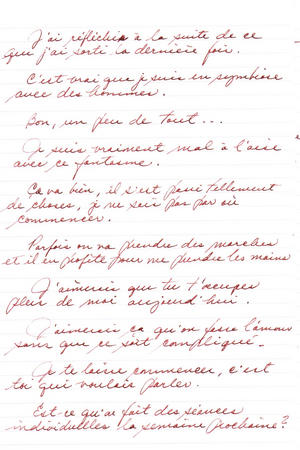 J'ai réfléchie à la suite de ce
que j'ai sorti la dernière fois.
C'est vrai que je suis en symbiose
avec des hommes.
Bon, un peu de tout...
Je suis vraiment mal à l'aise
avec ce fantasme.
Ça va bien, il s'est passé tellement
de choses, je ne sais pas par où
commencer.
Parfois on va prendre des marches
et il en profite pour me prendre les mains
J'aimerais que tu t'occupes
plus de moi aujourd'hui.
J'aimerais ça qu'on fasse l'amour
sans que ce soit compliqué.
Je te laisse commencer, c'est
toi qui voulais parler.
Est-ce qu'on fait des séances
individuelles la semaine prochaine?